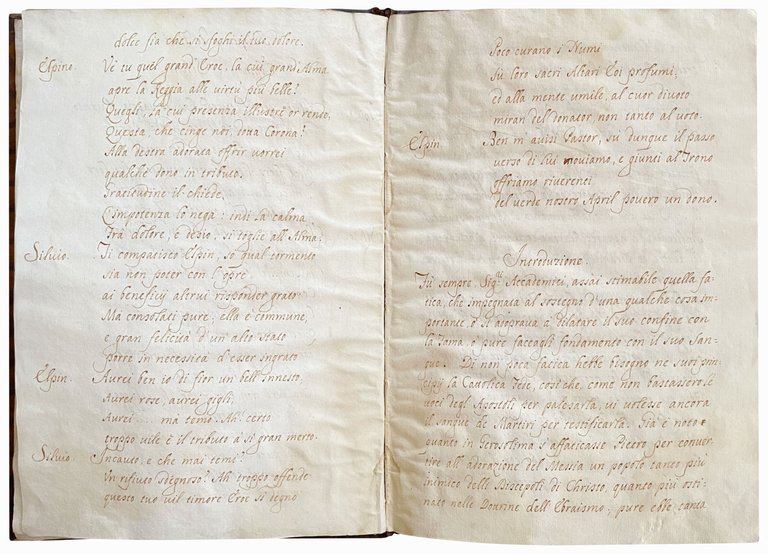 dolce fia che si sfoghi il tuo dolore.
Elpino. Ve' tu quel grand'Eroe, la cui grand'Alma
apre la Reggia alle virtù più belle?
Quegli, la cui presenza illustre or rende
Questa, che cinge noi, tota Corona?
Alla destra adorata offrir vorrei
qualche dono in tributo.
Gratitudine il chiede,
L'impotenza lo nega: indi la calma
Trà dolore, e desio, si toglie all'Alma.
Silvio. Ti compatisco Elpin, sò qual tormento
sia non poter con l'opre
ai beneficij altrui risponder grato
Ma consolati pure; ella è commune,
e gran felicità d'un'alto stato
porre in necessità d'esser ingrato
Elpin. Aurei ben io di fior un bell'innesto,
Aurei rose, aurei gigli,
Aurei ... ma temo. Ah! certo
troppo vile è il tributo à si gran merto.
Silvio. Incauto, e che mai temi?
Un rifiuto sdegnoso? Ah troppo offende
questo tuo vil timore Eroe sì degno
Poco curano i Numi
Sù loro sacri Altari Eoi profumi;
ed alla mente umile, al cuor divoto
miran del donator, non tanto al voto.
Elpin. Ben m'avisi Pastor, sù dunque il passo
verso di lui moviamo, e giunti al Trono
offriamo riverenti
del verde nostro April povero un dono.
Introduzione.
Fù sempre, Sig.ri Accademici, assai stimabile quella fa-
tica, che impegnata al sostegno d'una qualche cosa im-
portante, ò s'adoprava à dilatare il suo confine con
la Fama, ò pure faceagli fondamento con il suo San-
gue. Di non poca fatica hebbe bisogno ne' suoi prin-
cipij la Cattolica Fede, così che, come non bastassero le
voci degl'Apostoli per palesarla, vi volesse ancora
il sangue de' Martiri per testificarla. Già è noto
quanto in Gerosolima s'affaticasse Pietro per conver-
tire all'adorazione del Messia un popolo tanto più
inimico delli Discepoli di Christo, quanto più osti-
nato nelle Dottrine dell'Ebraismo; pure ebbe tanta